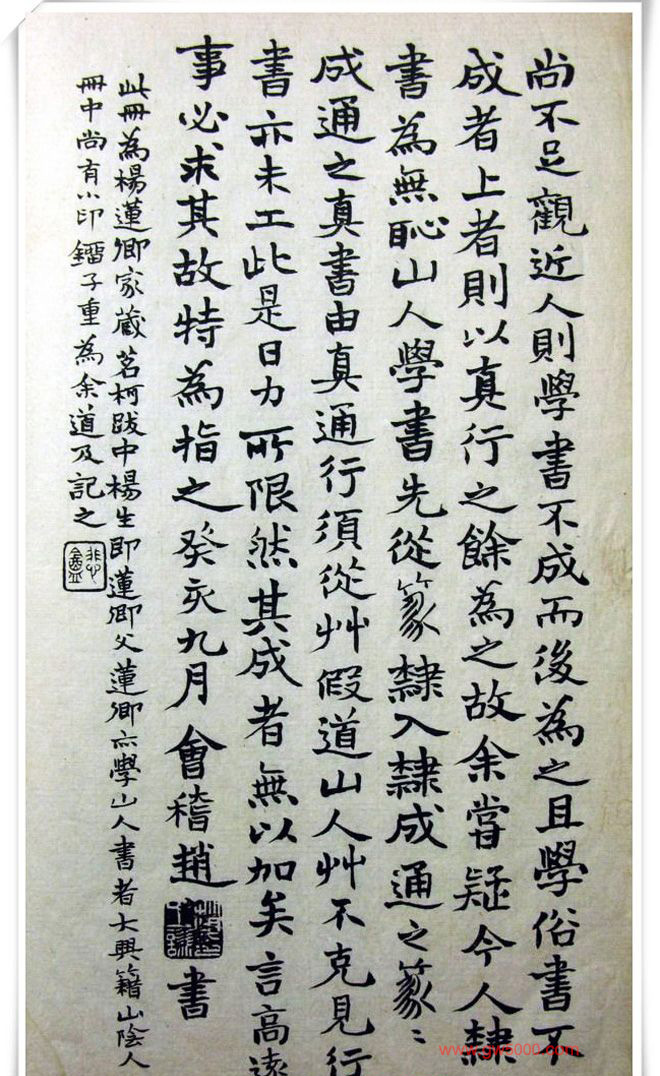 尚不足觀近人則學書不成而後為之且學俗書不
成者上者則以真行之餘為之故余嘗疑今人隸
書為無恥山人學書先從篆隸入隸成通之篆〻
成通之真書由真通行須從艸假道山人艸不克見行
書亦未工此是日力所限然其成者無以加矣言高遠
事必求其故特為指之癸亥九月會稽趙書
此冊為楊蓮卿家藏茗柯跋中楊生即蓮卿父蓮卿亦學山人書者大興籍山陰人
冊中尚有小印鐂子重為余道及記之
悲盦
www.gw5000.com